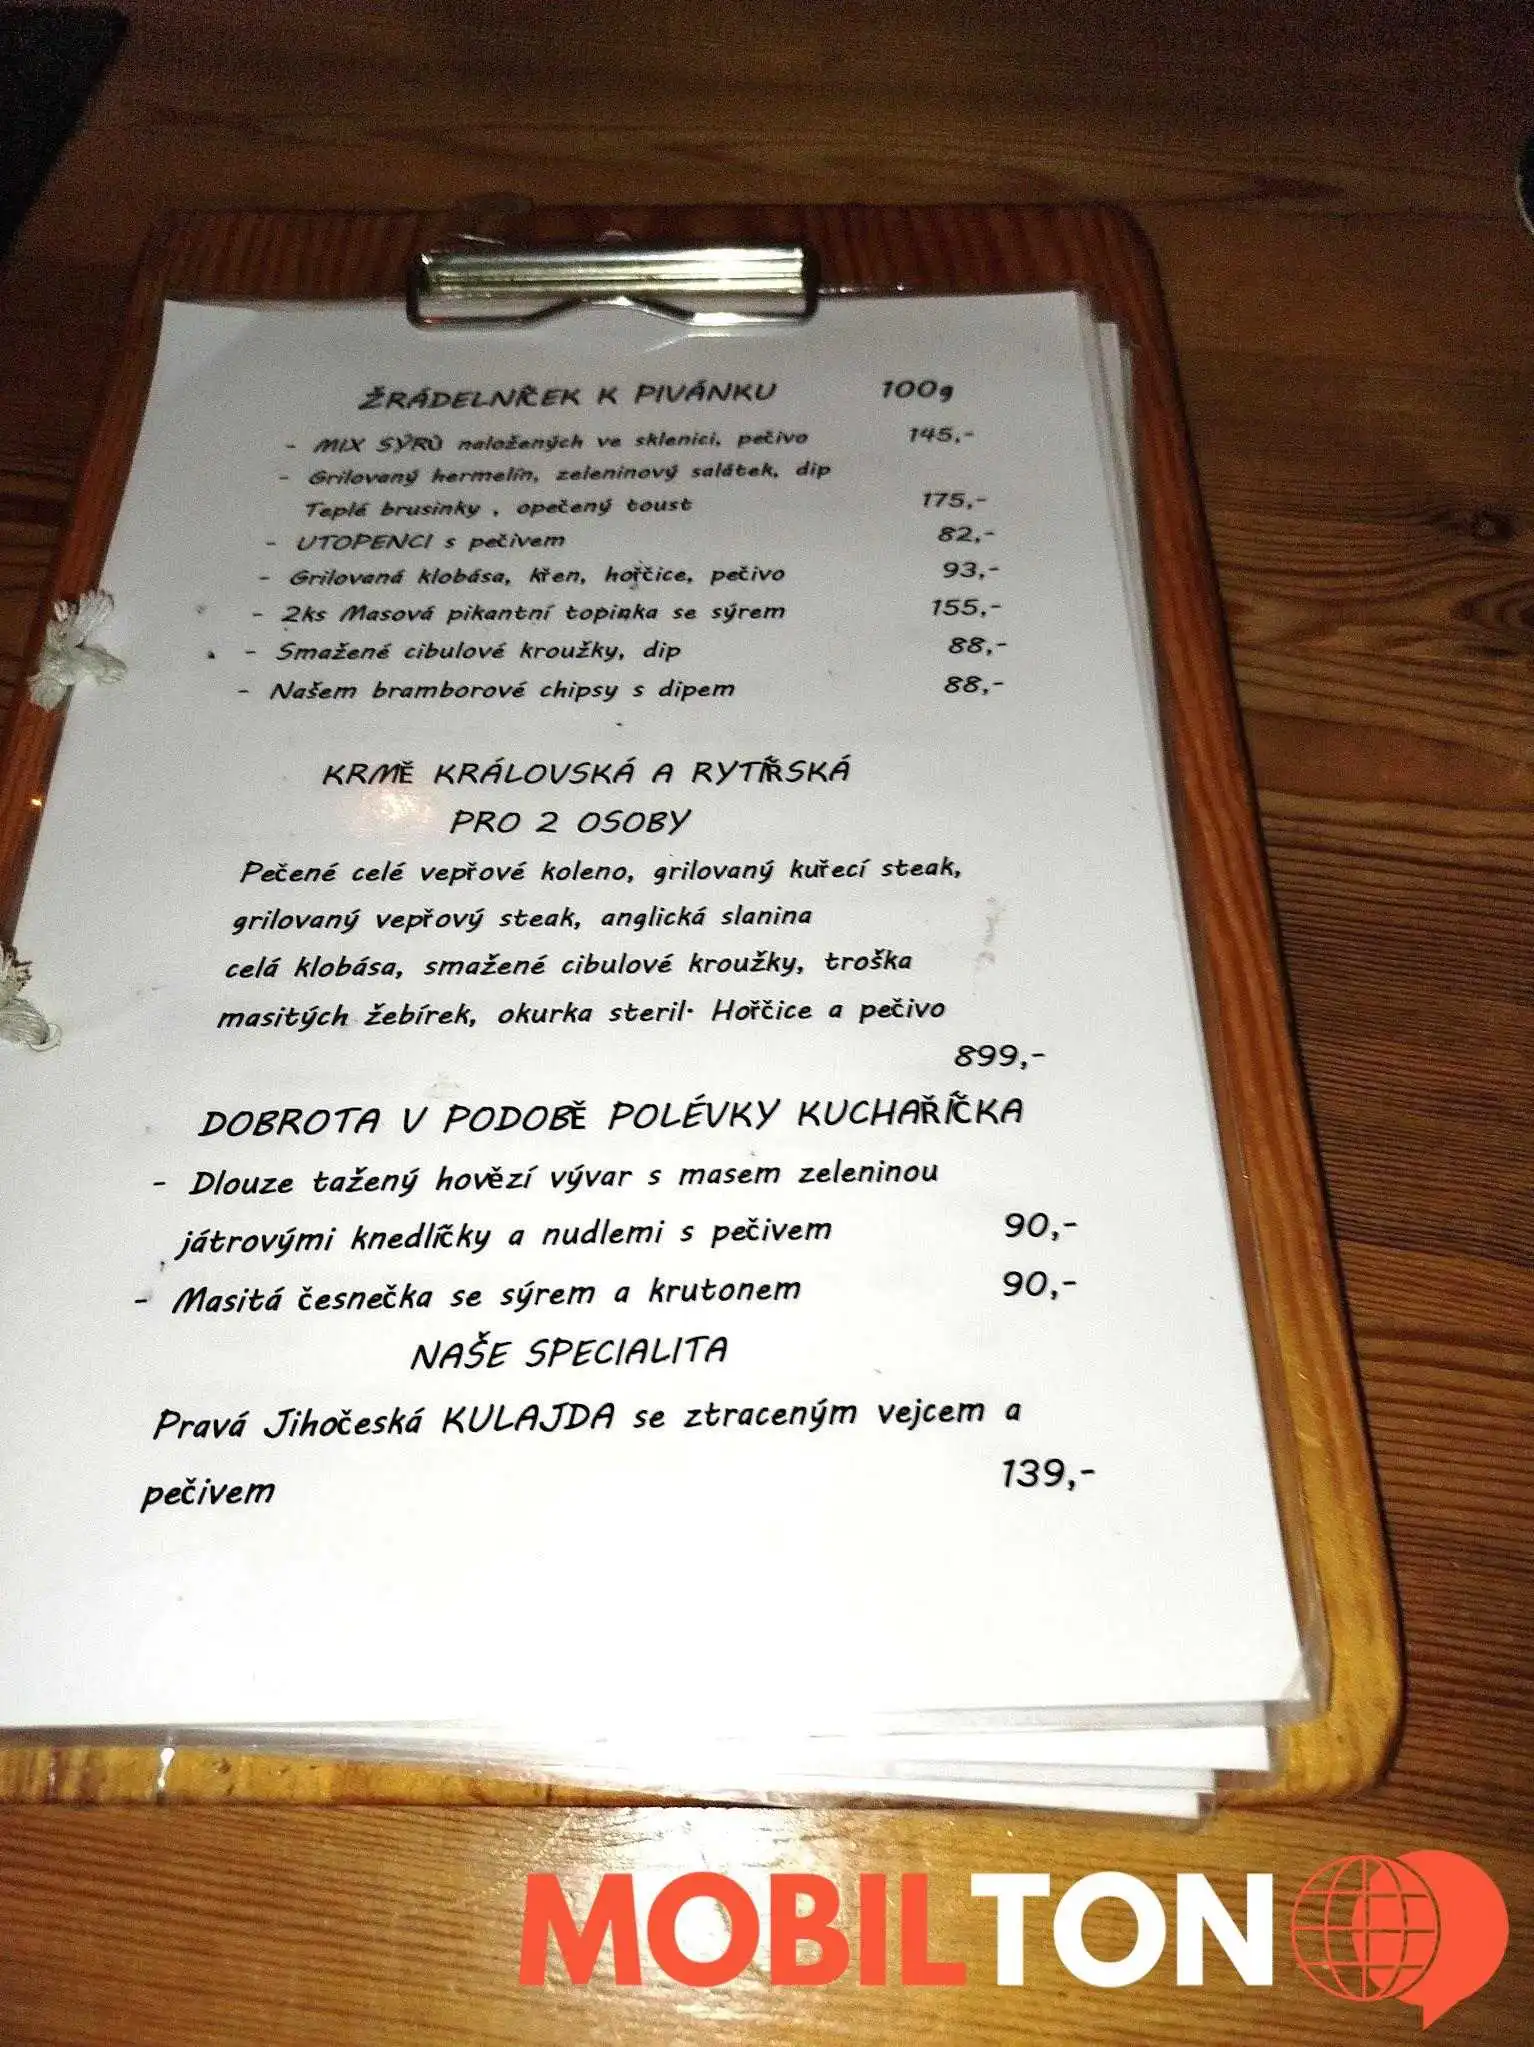 ŽRÁDELNÍČEK K PIVÁNKU 100g
- MIX SÝRŮ naložených ve sklenici, pečivo 145,-
- Grilovaný hermelín, zeleninový salátek, dip
Teplé brusinky , opečený toust 175,-
- UTOPENCI s pečivem 82,-
- Grilovaná klobása, křen, hořčice, pečivo 93,-
- 2ks Masová pikantní topinka se sýrem 155,-
- Smažené cibulové kroužky, dip 88,-
- Našem bramborové chipsy s dipem 88,-
KRMĚ KRÁLOVSKÁ A RYTÍŘSKÁ
PRO 2 OSOBY
Pečené celé vepřové koleno, grilovaný kuřecí steak,
grilovaný vepřový steak, anglická slanina
celá klobása, smažené cibulové kroužky, troška
masitých žebírek, okurka steril. Hořčice a pečivo
899,-
DOBROTA V PODOBĚ POLÉVKY KUCHAŘÍČKA
- Dlouze tažený hovězí vývar s masem zeleninou
játrovými knedlíčky a nudlemi s pečivem 90,-
- Masitá česnečka se sýrem a krutonem 90,-
NAŠE SPECIALITA
Pravá Jihočeská KULAJDA se ztraceným vejcem a
pečivem 139,-
MOBILTON